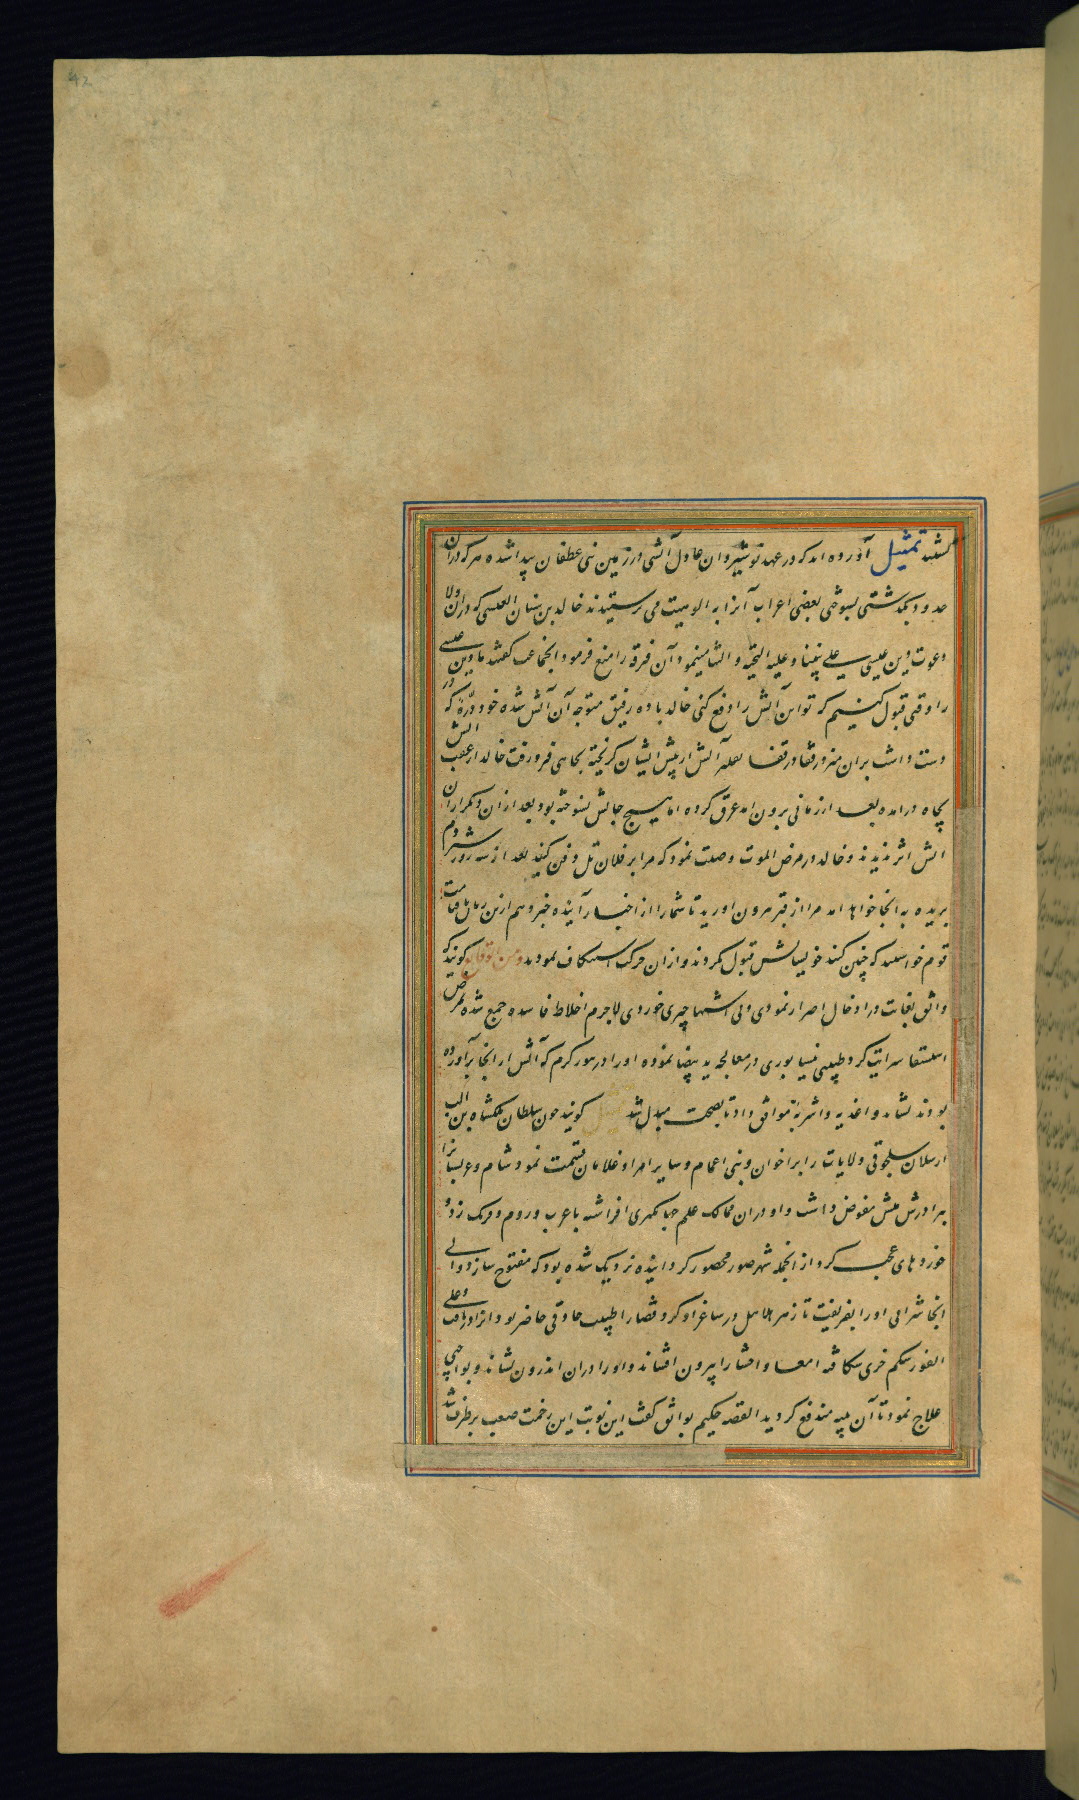 42
کشتند تمثیل آورده اند که در عهد نوشیروان عادل آتشی در زمین بنی عطفان پیدا شده هر که در آن
حدود بگذشتی بسوختی بعضی اعراب آنرا به الوهیت می پرستیدند خالد بن سنان العبسی که در آن ولا
دعوت دین عیسی علی نبینا و علیه التحیه و الثنا مینمود آن فرقه را منع فرمود انجماعت گفتند ما دین عیسی
را وقتی قبول کنیم که تو این آتش را دفع کنی خالد با ده رفیق متوجه آن آتش شده خود درّهٔ که در
دست داشت بران میزد و رفقا در قفا آتش از پیش ایشان گریخته بچاهی فرو رفت خالد از عقب آتش
بچاه درآمده بعد از زمانی برون امد عرق کرده اما هیچ جایش نسوخته بود بعد ازان دیگر ازان
اتش اثر ندیدند و خالد در مرض الموت وصیت نمود که مرا بر فلان تل دفن کنید بعد از سه روز
بریده به انجا خواهد امد مرا از قبر برون اورید تا شما را از اخبار آینده خبر دهم ازین زمان تا قیامت
قوم خواستند که چنین کنند خویشانش قبول نکردند و ازان حرکت استنکاف نمودند گویند که
واثق بغایت در ادخال اصرار نمودی و بی اشتها چیزی خوردی لاجرم اخلاط فاسده جمع شده بمرض
استسقا سرایت کرد طبیبی نیسابوری در معالجه ید بیضا نموده او را در تنور گرم که آتش از انجا برآورده
بودند نشاند و اغذیه و اشربهٔ موافق داد تا بصحت مبدل شد گویند چون سلطان ملکشاه بن الب
ارسلان سلجوقی ولایات را بر اخوان و بنی اعمام و سایر امرا و غلامان قسمت نمود شام و
برادرش تتش مفوض داشت و او دران ممالک علم جهانگیری افراشته با عرب و روم و فرنگ زد و
خوردهای عجب کرد از انجمله شهر صور محصور گردانیده نزدیک شده بود که مفتوح سازد والی
انجا شرابی او را بفریفت تا زهر هلاهل در ساغر او کرد قضا را طبیب حاذقی حاضر بود
الفور شکم خری شکافته امعا و احشا را بیرون افشاند و او را دران اندرون نشاند و بواجبی
علاج نمود تا آن مندفع گردید القصه حکیم بواثق گفت این نوبت این زحمت صعب برطرف شد